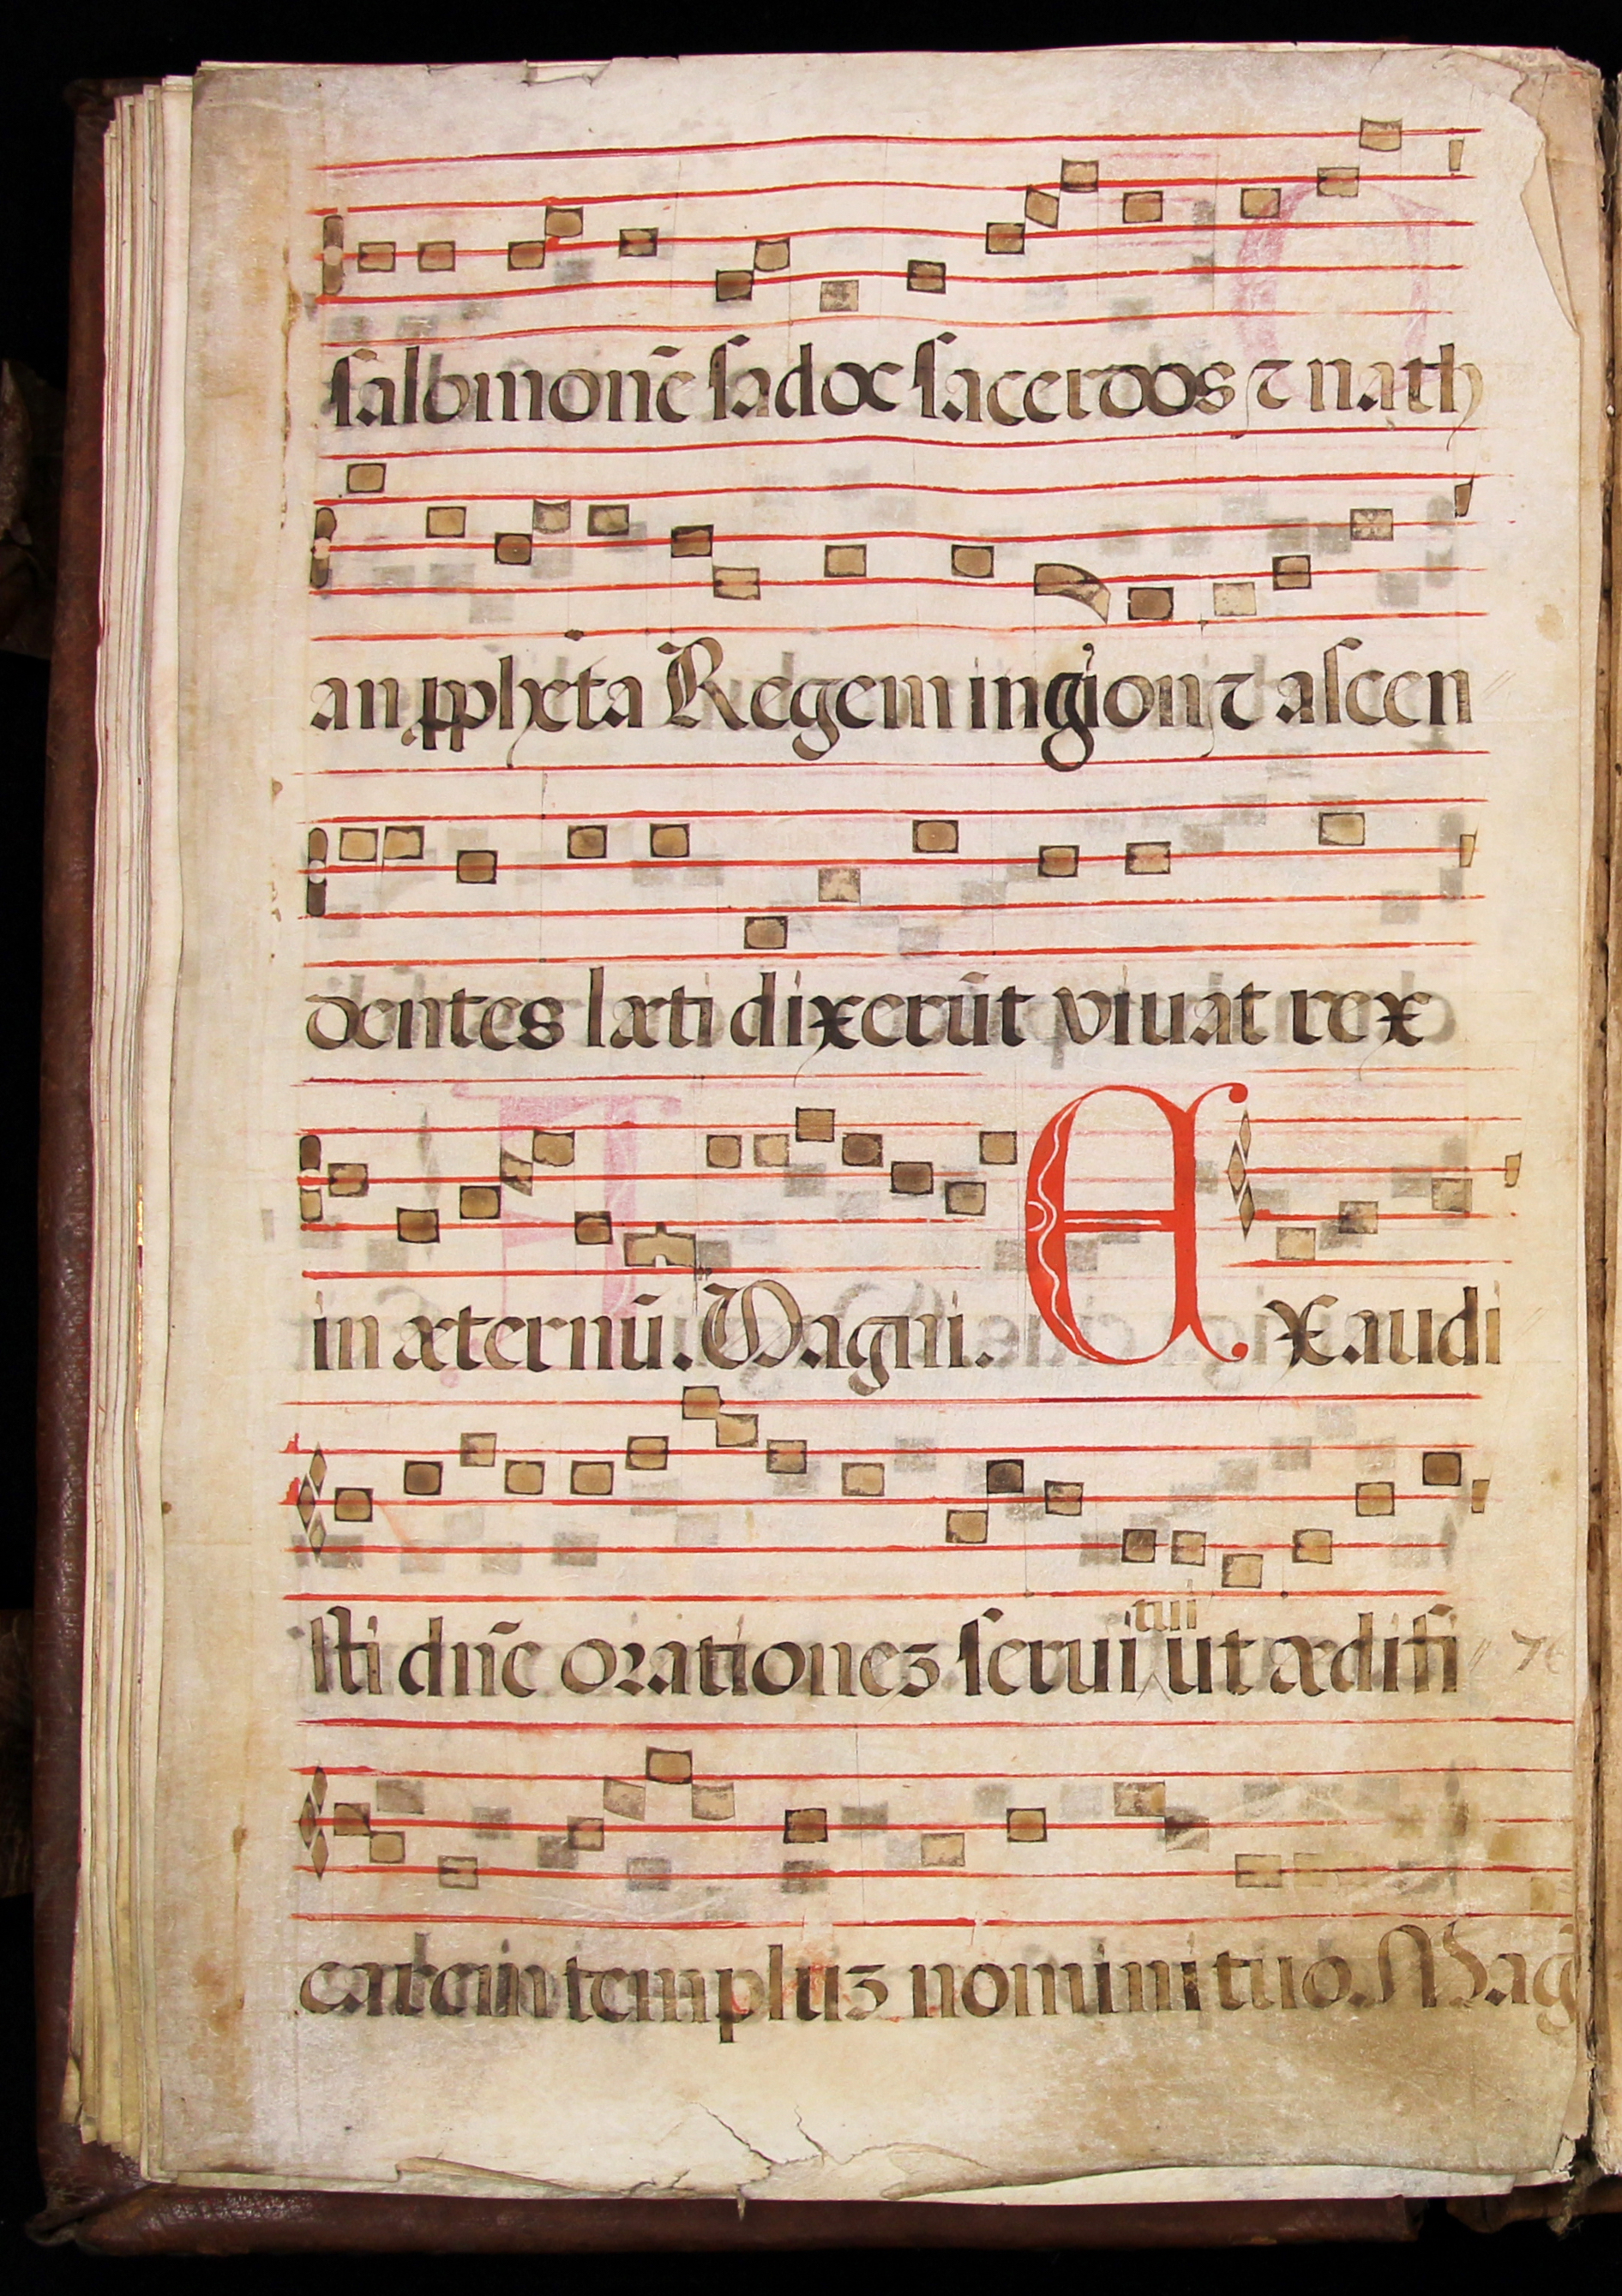 salomonē sadoc sacerdos ⁊ nath
an ꝓpheta Regem in gion ⁊ ascen
dentes læti dixerūt viuat rex
in æternū. Magni. EXaudi
sti dn̄e orationeʒ serui tui ut ædifi
carem templuʒ nomini tuo. Mag